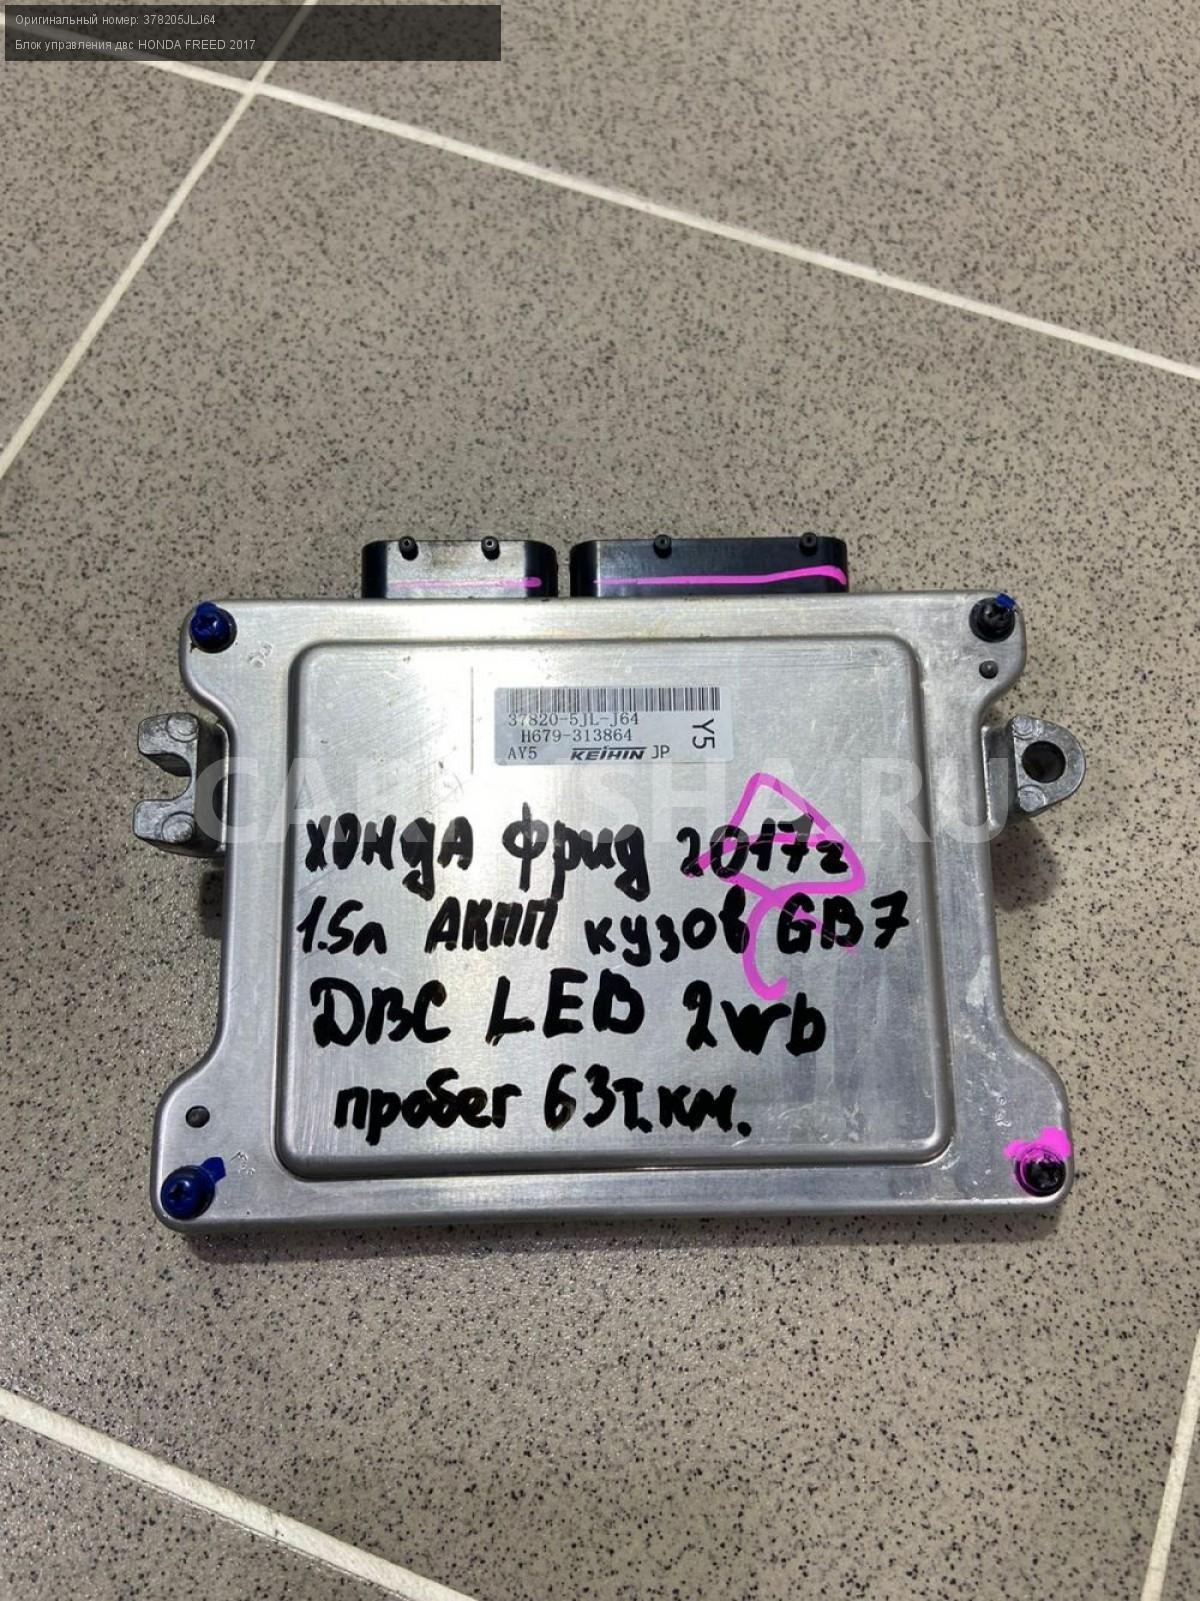 Оригинальный номер: 378205JLJ64
Блок управления двс HONDA FREED 2017
37820-5JL-J64
H679-313864
AY5 KEIHIN JP
Y5
CAR SHA.RU
ХОНДА Фрид 2017г
1.5л АКПП кузов GB7
ДВС LEB 2wb
пробег 63т.км.